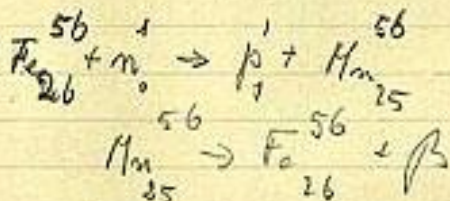 Fe₂₆⁵⁶ + n₀¹ → p₁¹ + Mn₂₅⁵⁶
Mn₂₅⁵⁶ → Fe₂₆⁵⁶ + β